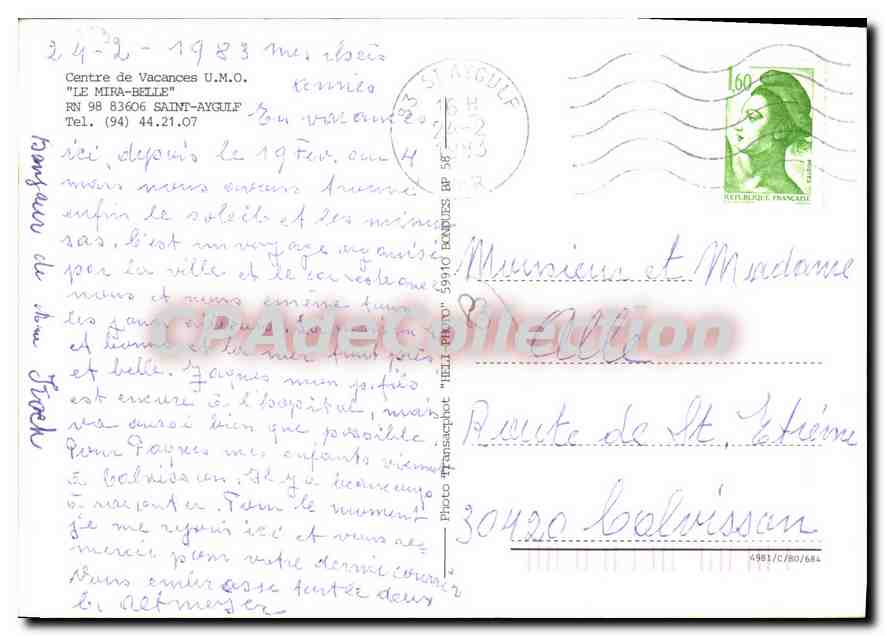 24-2-1983 mes chers
Centre de Vacances U.M.O.
"LE MIRA-BELLE"
RN 98 83606 SAINT-AYGULF
Tel. (94) 44.21.07
En vacances
ici, depuis le 19 Fev. ou 4
mais nous avons trouvé
enfin le soleil et les mimo
sas. C'est un voyage organisé
par la ville et le car
nous et nous emène tous
les jours
et bonne et la mer tout près
et belle. Jaques mon p. fils
est encore à l'hopital, mais
va aussi bien que possible.
Pour Paques mes enfants viennent
à Calvisson. Il y a beaucoup
à raconter. Pour le moment
je me rejouis ici et vous re=
mercie pour votre dernie courrier
Vous embrasse toute deux
L. Altmeyer
Bonjour de Mme Koch
83 ST AYGULF
16 H
24-2
1983
1,60
REPUBLIQUE FRANÇAISE
Photo Transacphot "HELI-PHOTO" 59910 BONDUES BP 58
Monsieur et Madame
Alle
Route de St. Etienne
30420 Calvisson
4981/C/80/684
CPAdeCollection